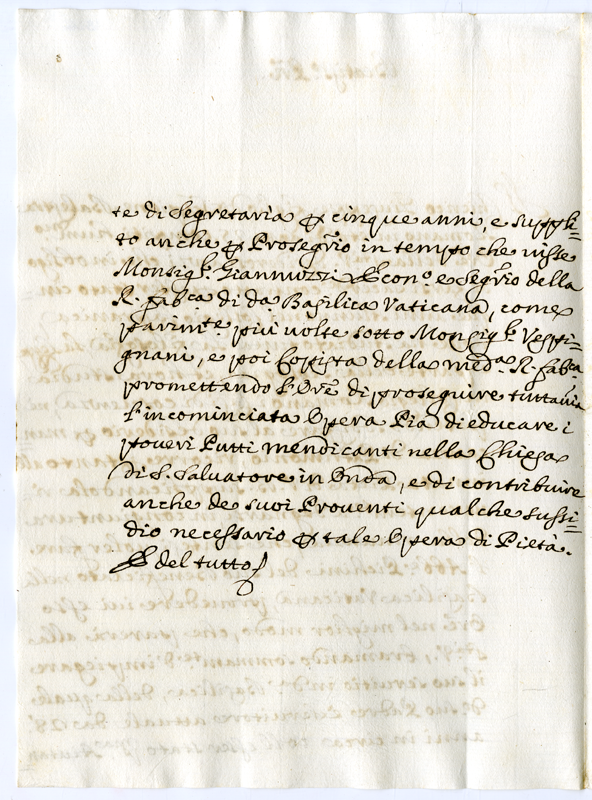 te di Segretaria p cinque anni, e suppli=
to anche p Proseg.rio in tempo che uisse
Monsig.r Giannuzzi Econ.o e Seg.rio della
R. fab.ca di d.a Basilica Vaticana, come
parim.te più uolte sotto Monsig.r Vespi=
gnani, e poi Copista della med.a R. fab.ca
promettendo l'Ore di proseguire tuttauia
l'incominciata Opera Pia di educare i
poueri Putti mendicanti nella Chiesa
di S. Saluatore in Onda, e di contribuire
anche de suoi Prouenti qualche sussi=
dio necessario p tale Opera di Pietà.
E del tutto